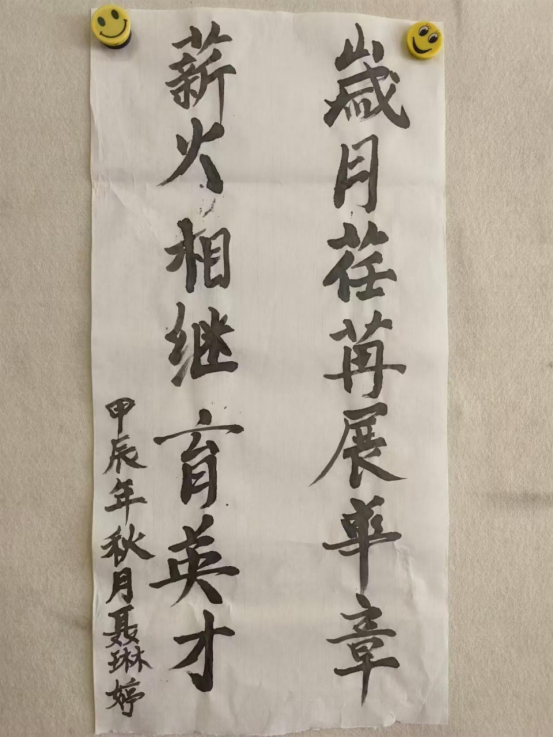 嵗月荏苒展華章
薪火相继育英才
甲辰年秋月聂琳婷